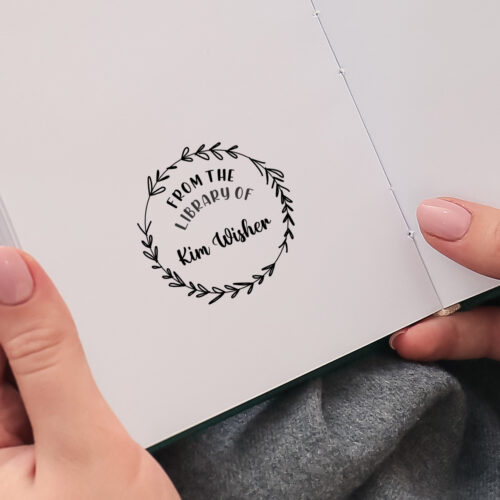 FROM THE
LIBRARY OF
Kim Wisher